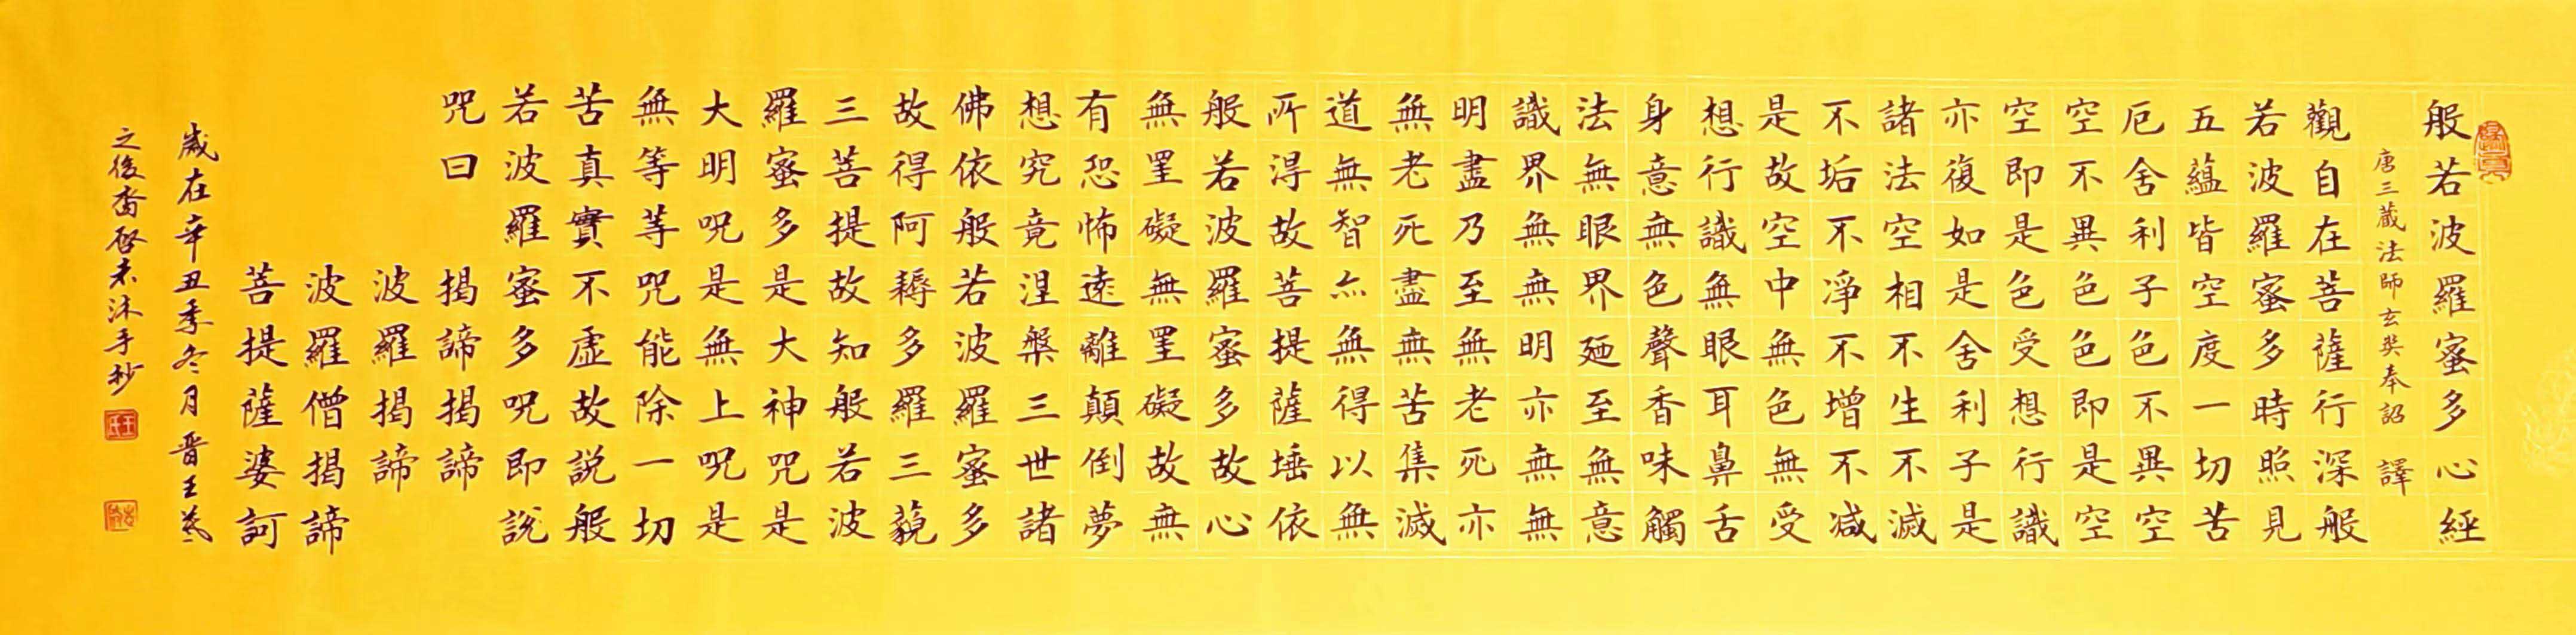 般若波羅蜜多心經
唐三藏法師玄奘奉詔譯
觀自在菩薩行深般
若波羅蜜多時照見
五蘊皆空度一切苦
厄舍利子色不異空
空不異色色即是空
空即是色受想行識
亦復如是舍利子是
諸法空相不生不滅
不垢不淨不增不減
是故空中無色無受
想行識無眼耳鼻舌
身意無色聲香味觸
法無眼界廼至無意
識界無無明亦無無
明盡乃至無老死亦
無老死盡無苦集滅
道無智亦無得以無
所得故菩提薩埵依
般若波羅蜜多故心
無罣礙無罣礙故無
有恐怖遠離顛倒夢
想究竟涅槃三世諸
佛依般若波羅蜜多
故得阿耨多羅三藐
三菩提故知般若波
羅蜜多是大神咒是
大明咒是無上咒是
無等等咒能除一切
苦真實不虛故說般
若波羅蜜多咒即說
咒曰
揭諦揭諦
波羅揭諦
波羅僧揭諦
菩提薩婆訶
歲在辛丑季冬月晉王羲
之後裔啟未沐手抄